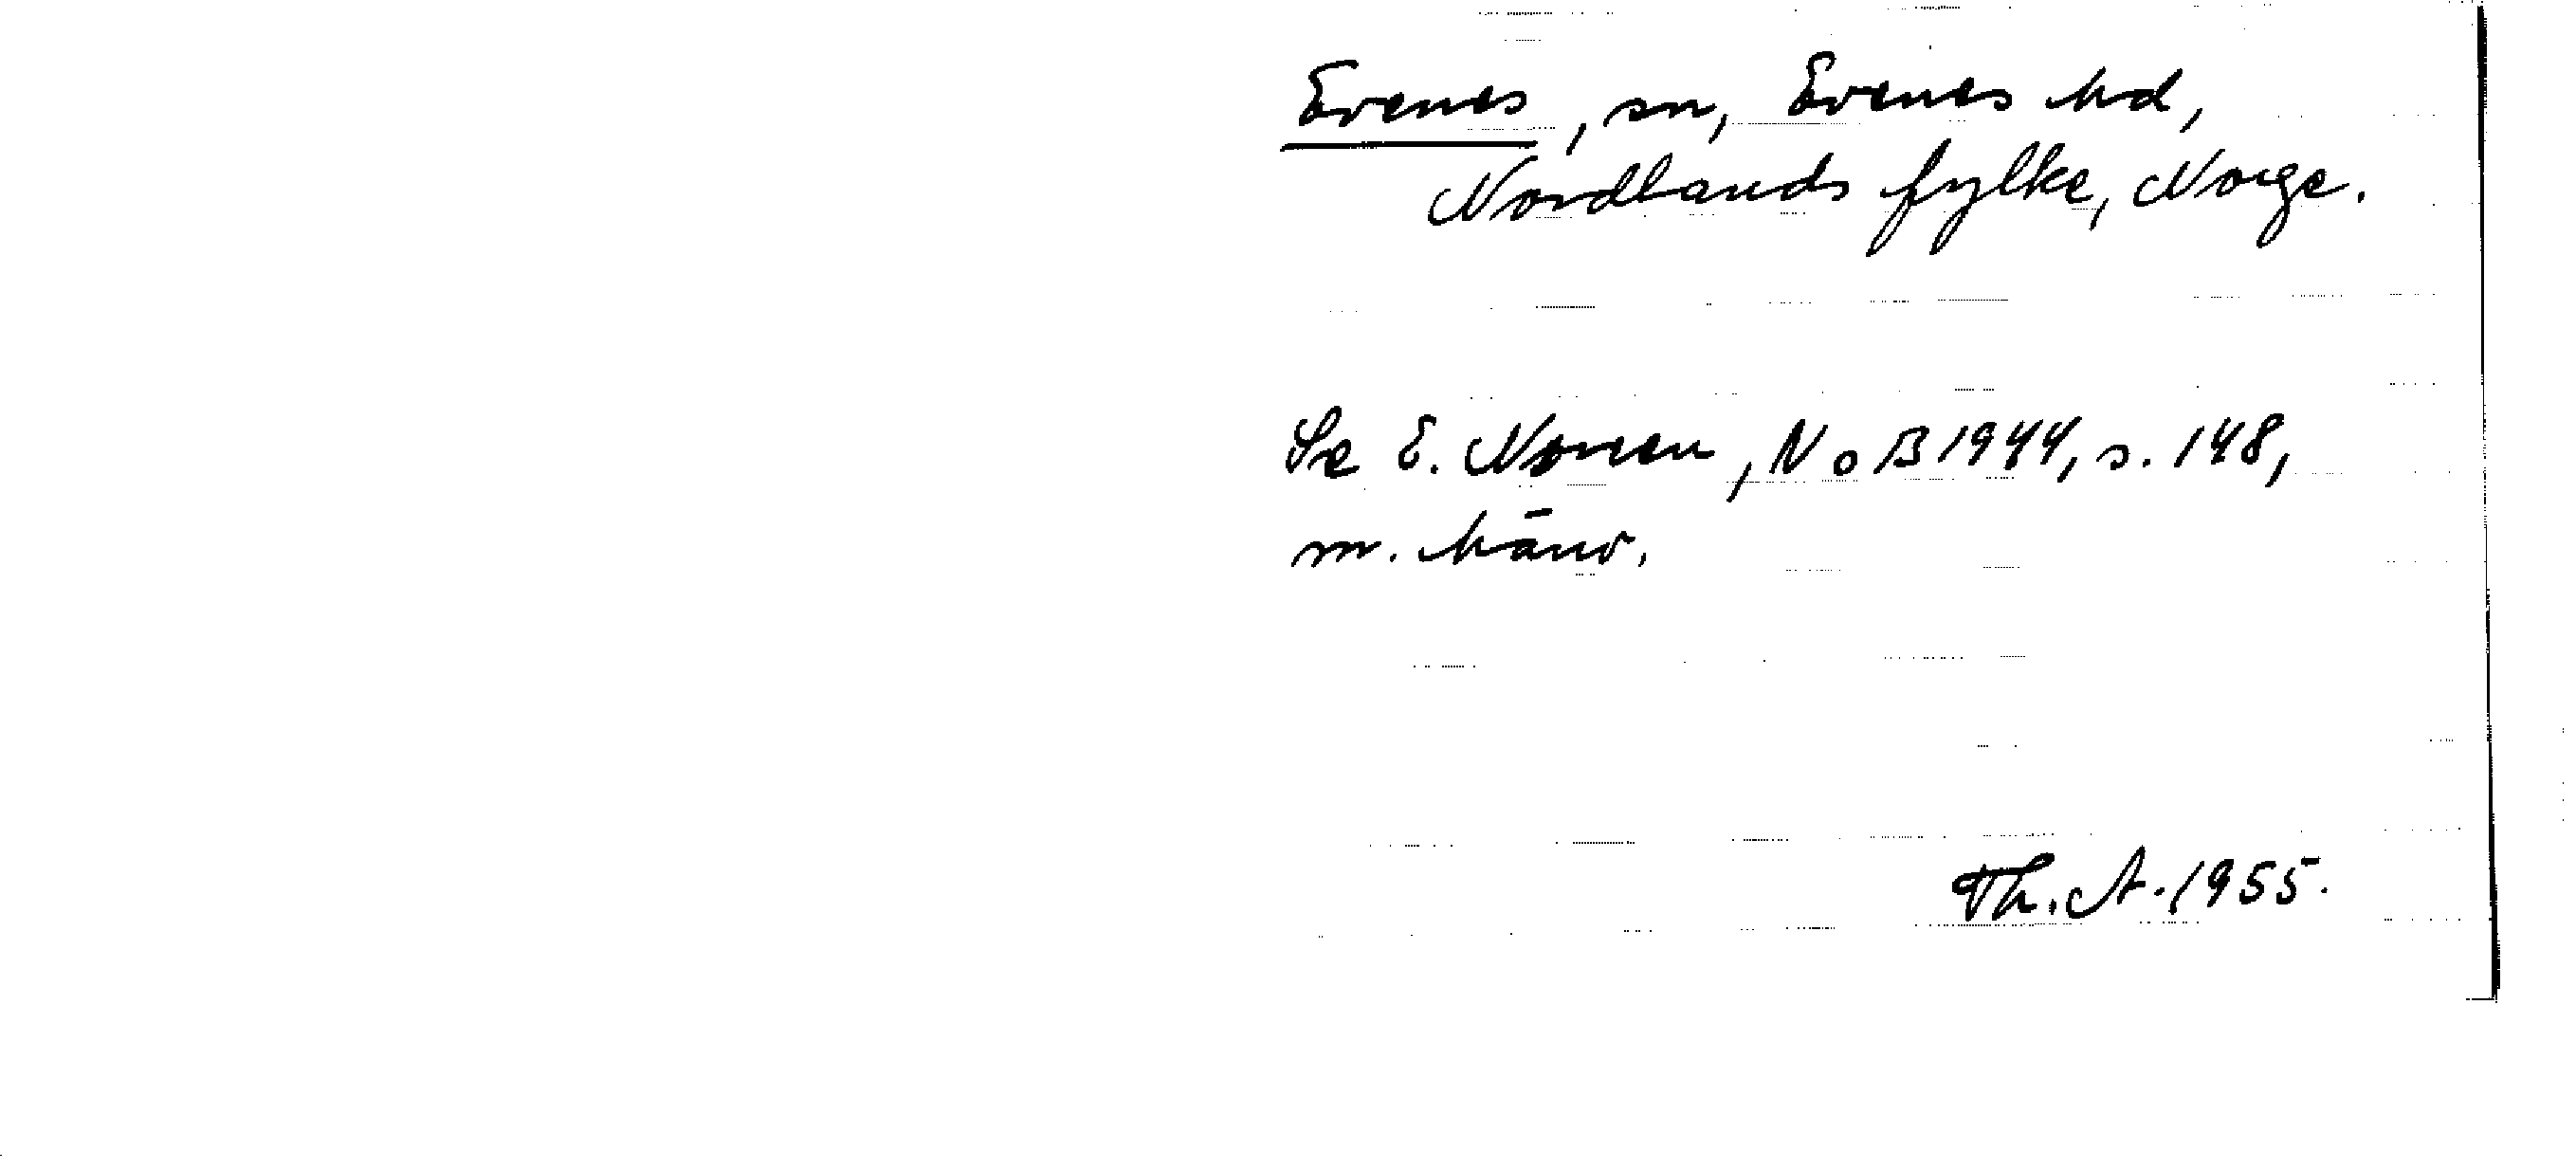 Evenes, sn, Evenes hd,
Nordlands fylke, Norge.
Se E. Noreen, NoB 1944, s. 148,
m. hänv.
Th. A. 1955.